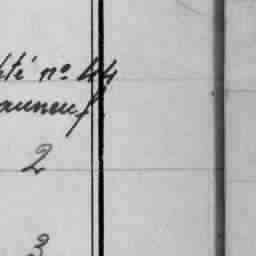 té nº 44
auneuf
2
3